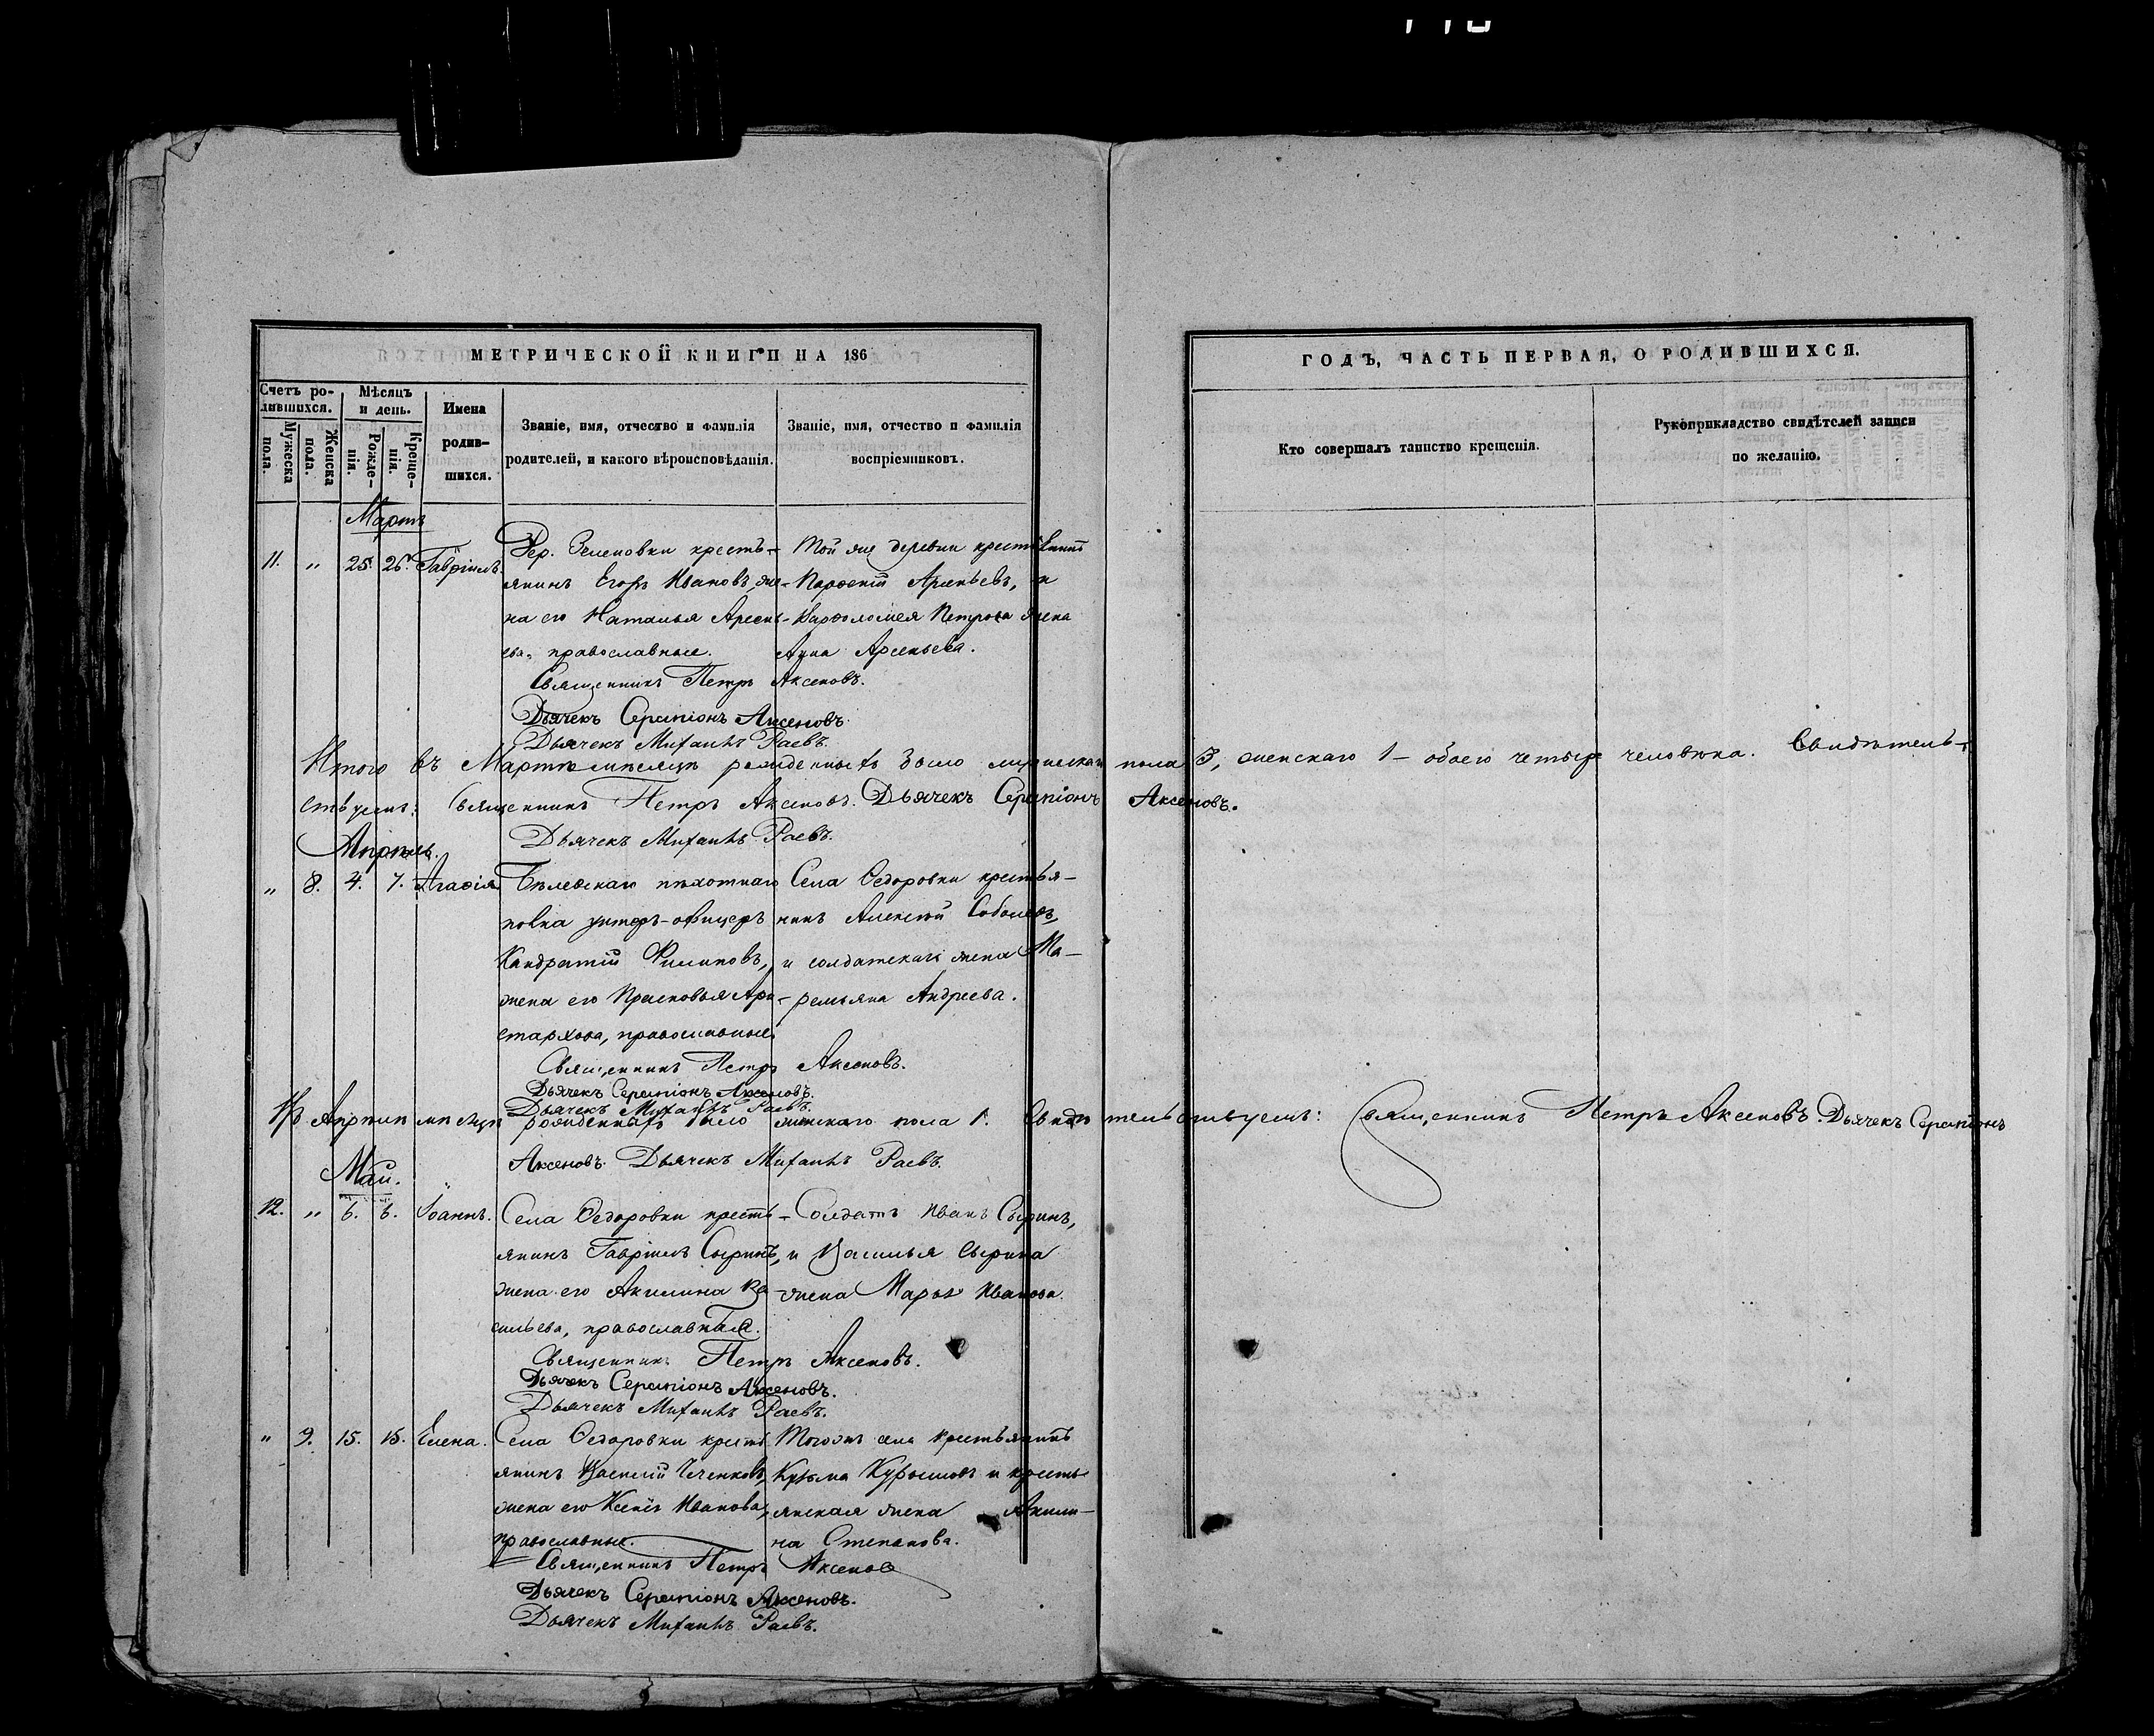 МЕТРИЧЕСКОЙ КНИГИ НА 186
Счетъ ро-
дившихся.
Мужеска
пола.
Женска
пола.
Мѣсяцъ
и день.
Рожде-
нія.
Креще-
нія.
Имена
родив-
шихся.
Званіе, имя, отчество и фамилія
родителей, и какого вѣроисповѣданія.
Званіе, имя, отчество и фамилія
воспріемниковъ.
Мартъ
11. „ 25. 26. Гавріилъ.
Дер. Зеленовки кресть-
янинъ Егоръ Ивановъ, же-
на его Наталья Арсень-
ева, православные.
Той же деревни крестьянинъ
Арсеньевъ, и
Варѳоломея Петрова жена
Анна Арсеньева.
Священникъ Петръ Аксеновъ.
Дьячекъ Серапіонъ Аксеновъ.
Дьячекъ Михаилъ Раевъ.
Итого въ Мартѣ мѣсяцѣ рожденныхъ было мужескаго
ствуемъ: Священникъ Петръ Аксеновъ. Дьячекъ Серапіонъ
Дьячекъ Михаилъ Раевъ.
Апрѣль.
„ 8. 4. 7. Агафія
Бѣлевскаго пѣхотнаго
полка унтеръ-офицеръ
Кандратій Филиповъ,
жена его Прасковья Ари-
стархова, православные
Села Ѳедоровки крестья-
нинъ Алексѣй Соболевъ,
и солдатская жена Ма-
ремьяна Андреева.
Священникъ Петръ Аксеновъ.
Дьячекъ Серапіонъ Аксеновъ.
Дьячекъ Михаилъ Раевъ.
Въ Апрѣлѣ мѣсяцѣ рожденныхъ было женскаго пола 1. Свидѣ
Аксеновъ. Дьячекъ Михаилъ Раевъ.
Май.
12. „ 6. 6. Іоаннъ.
Села Ѳедоровки кресть-
янинъ Гавріилъ Сыринъ,
жена его Акилина Ва-
сильева, православные.
Солдатъ Иванъ Сыринъ,
и Василья Сырина
жена Марья Иванова.
Священникъ Петръ Аксеновъ.
Дьячекъ Серапіонъ Аксеновъ.
Дьячекъ Михаилъ Раевъ.
„ 9. 15. 15. Елена.
Села Ѳедоровки кресть
янинъ Василій
жена его Ксенія Иванова,
православные.
Тогожъ села крестьянинъ
Кузьма и кресть
янская жена Акили-
на Степанова.
Священникъ Петръ Аксеновъ
Дьячекъ Серапіонъ Аксеновъ.
Дьячекъ Михаилъ Раевъ.
ГОДЪ, ЧАСТЬ ПЕРВАЯ, О РОДИВШИХСЯ.
Кто совершалъ таинство крещенія.
Рукоприкладство свидѣтелей записи
по желанію.
пола 3, женскаго 1 — обоего четыре человѣка. Свидѣтель-
Аксеновъ.
тельствуемъ: Священникъ Петръ Аксеновъ. Дьячекъ Серапіонъ